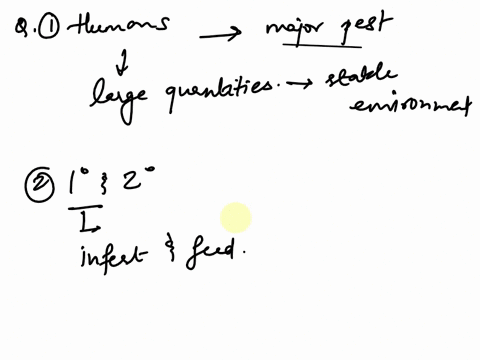 Q. ① Humans → major pest
↓
large quantities. → stable
environment
② 1° & 2°
↳
infest & feed.